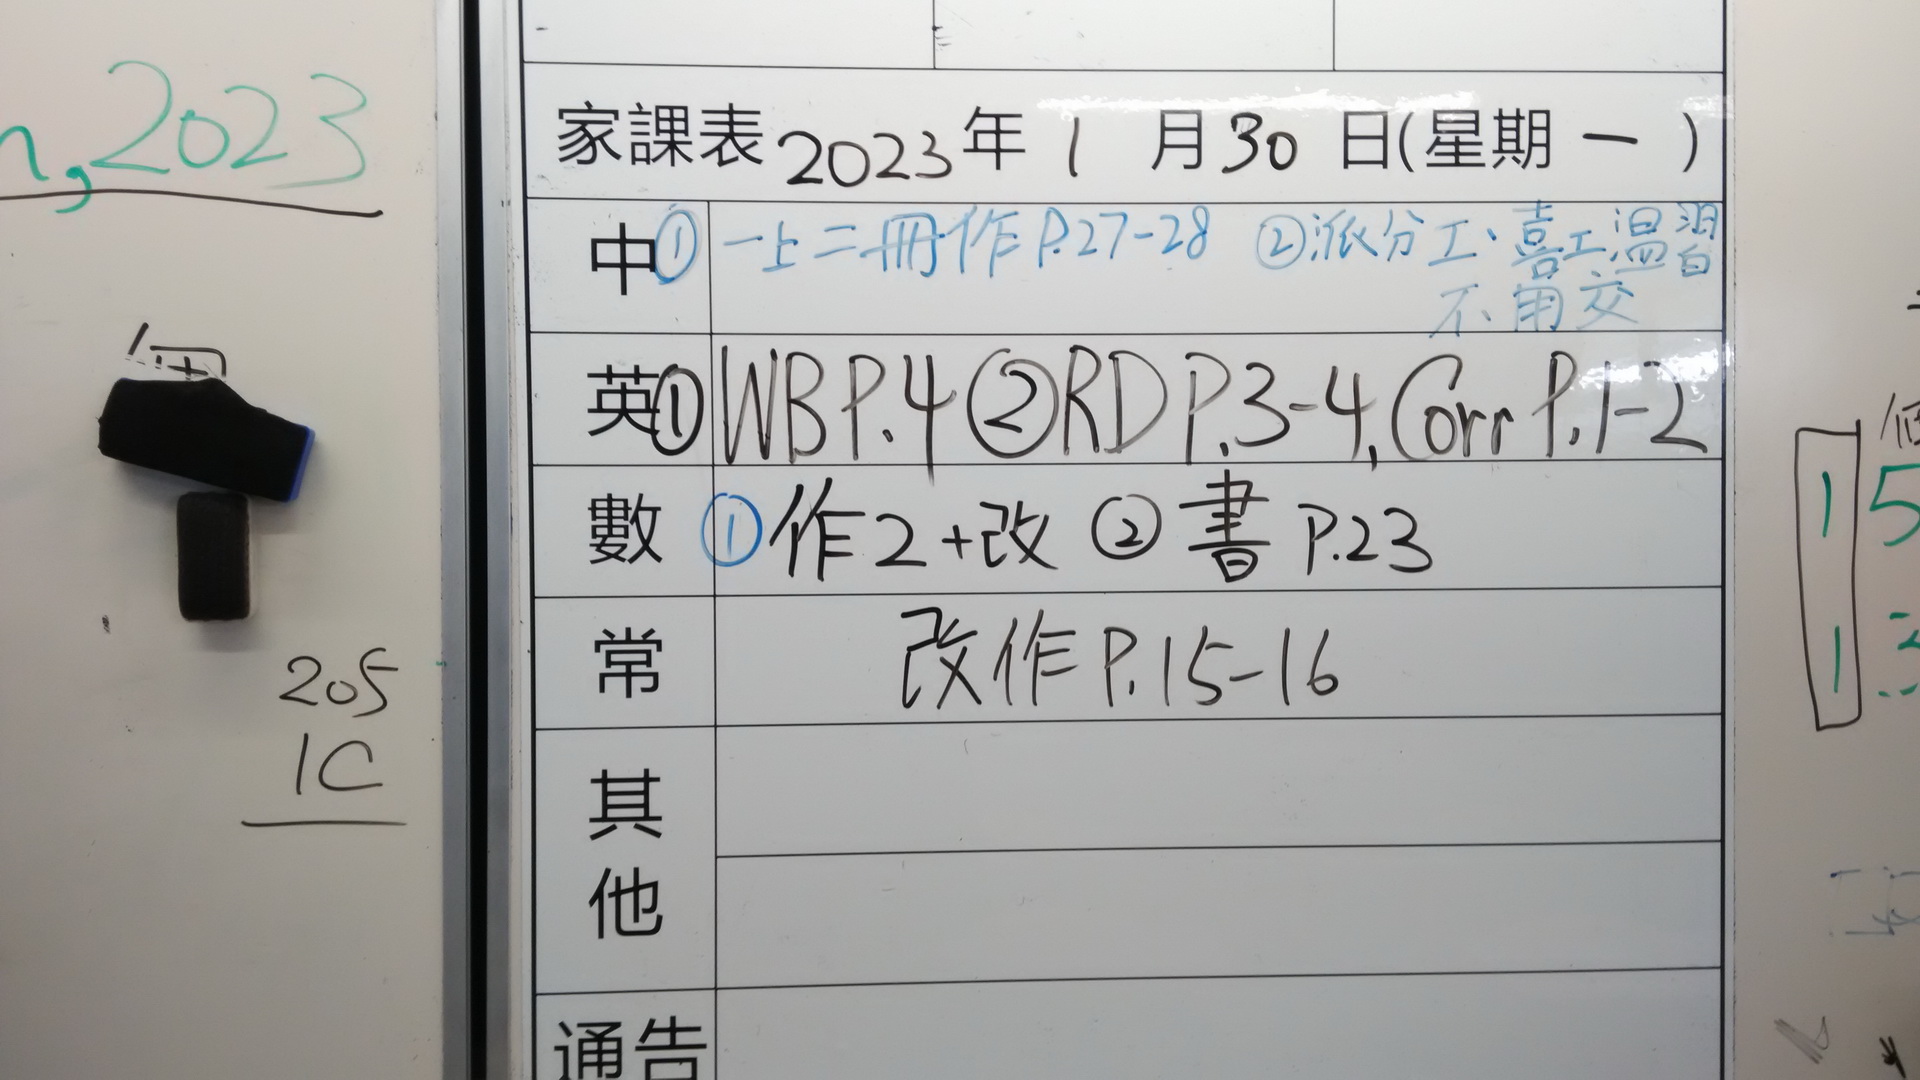 n, 2023
205
1C
家課表 2023 年 1 月 30 日(星期 一 )
中 ① 一上二冊作 P.27-28 ②派分工、喜工溫習
不用交
英 ① WB P.4 ② RD P.3-4, Corr P.1-2
數 ① 作2+改 ② 書 P.23
常 改作 P.15-16
其他
通告
1 5
1